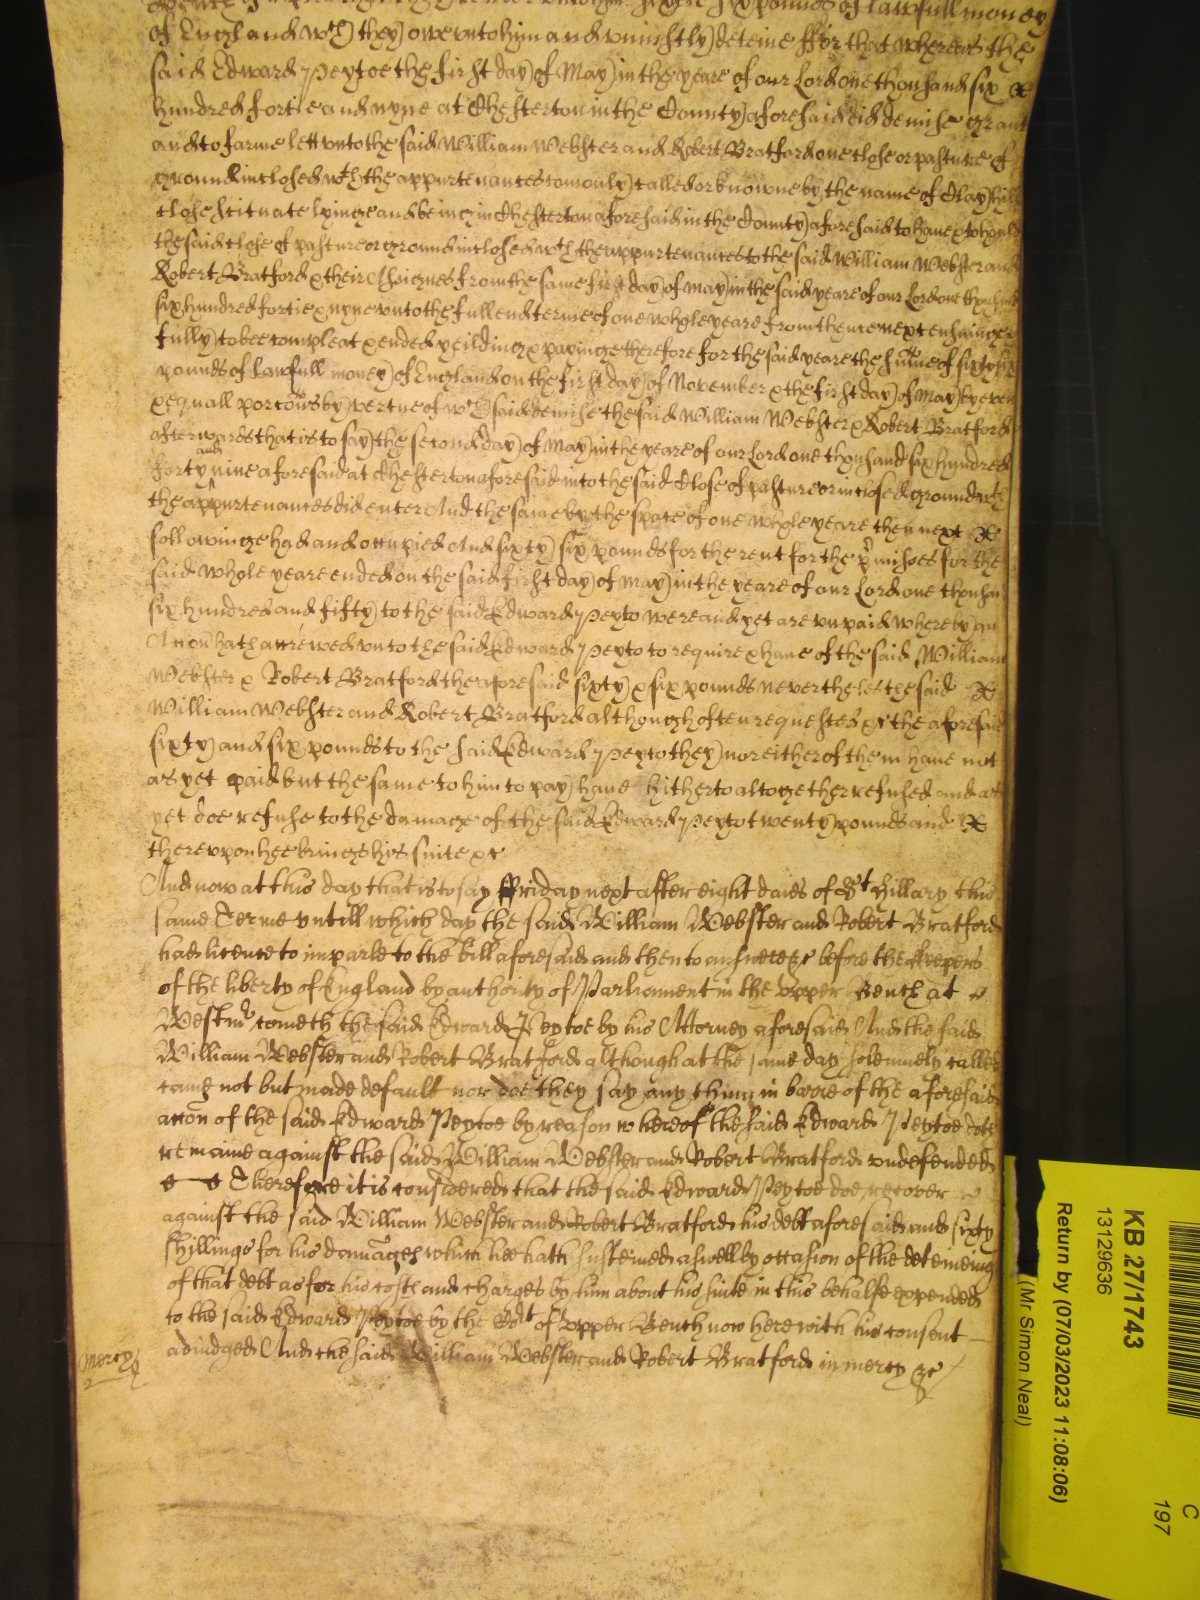 sixtie six pounds of lawfull money
of England wch they owe unto him and uniustly deteine ffor that whereas the
said Edward Peytoe the first day of May in the yeare of our Lord one thousand six &
hundred fortie and nyne at Chesterton in the County aforesaid did demise grant
and to farme lett unto the said William Webster and Robert Bratford one close or pasture of
ground inclosed wth the appurtenances comonly called or knowne by the name of Clay hill
close scituate lyinge and being in Chesterton aforesaid in the County aforesaid to have & to hould
the said close of pasture or ground inclosed wth the appurtenances to the said William Webster and
Robert Bratford & their Assignes from the same first day of May in the said yeare of our Lord one thousand
six hundred fortie & nyne unto the full end terme of one whole yeare from thence next ensuinge &
fully to bee compleat & ended yeildinge & payinge therefore for the said yeare the sume of sixty six
pounds of Lawfull money of England on the first day of November & the first day of May by even
& equall porcons by vertue of wch said demise the said William Webster & Robert Bratford
afterwards that is to say the second day of May in the yeare of our Lord one thousand six hundred
forty and nine aforesaid at Chesterton aforesaid into the said Close of pasture or inclosed ground wth
the appurtenances did enter And the same by the space of one whole yeare then next &
followinge had and occupied And sixty six pounds for the rent for the pmisses for the
said whole yeare ended on the said first day of May in the yeare of our Lord one thousan
six hundred and fifty to the said Edward Peyto were and yet are unpaid whereby an
Accon hath accrewed unto the said Edward Peyto to require & have of the said William
Webster & Robert Bratford the aforesaid sixty & six pounds neverthelesse the said &
William Webster and Robert Bratford although often requested &c the aforesaid
sixty and six pounds to the said Edward Peyto they nor either of them have not
as yet paid but the same to him to pay have hitherto altogether refused and as
yet doe refuse to the damage of the said Edward Peyto twenty pounds and &
thereupon hee brings his suite &c
And now at this day that is to say ffriday next after eight daies of St Hillary this
same Terme untill which day the said William Webster and Robert Bratford
had licence to imparle to the bill aforesaid and then to answere &c before the keepers
of the liberty of England by authority of Parliament in the Upper Bench at
Westmr cometh the said Edward Peytoe by his Attorney aforesaid And the said
William Webster and Robert Bratford although at the same day solemnely called
came not but made default nor doe they say any thing in barre of the aforesaid
accon of the said Edward Peytoe by reason whereof the said Edward Peytoe doth
remaine against the said William Webster and Robert Bratford undefended
Therefore it is considered that the said Edward Peytoe doe recover
against the said William Webster and Robert Bratford his debt aforesaid and sixty
shillings for his damages which hee hath susteined aswell by occasion of the deteineing
of that debt as for his costs and charges by him about his suite in this behalfe expended
to the said Edward Peytoe by the Cort of Upper Bench now here with his consent
adiudged And the said William Webster and Robert Bratford in mercy &c
Mercy
KB 27/1743
13129636
Return by (07/03/2023 11:08:06)
(Mr Simon Neal)
C
197